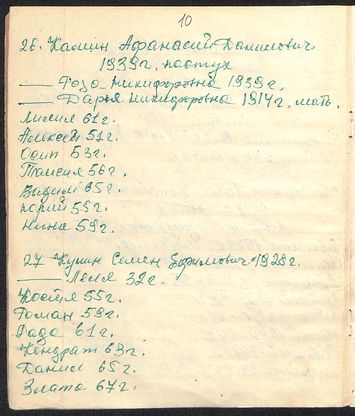 10
26. Калин Афанасий Данилович
1939г, пастух
—— Фоза Никифоровна 1939г.
—— Дарья Никифоровна 1914г, мать.
Лисия 61г.
Алексей 51г.
Осип 53г.
Таисия 56г.
Вадим 65г.
Юрий 55г.
Нина 59г.
27 Кукин Семен Ефимович 1928г.
—— Леля 32г.
Костя 55г.
Роман 58г.
Рада 61г.
Кондрат 63г.
Данил 65г.
Злата 67г.